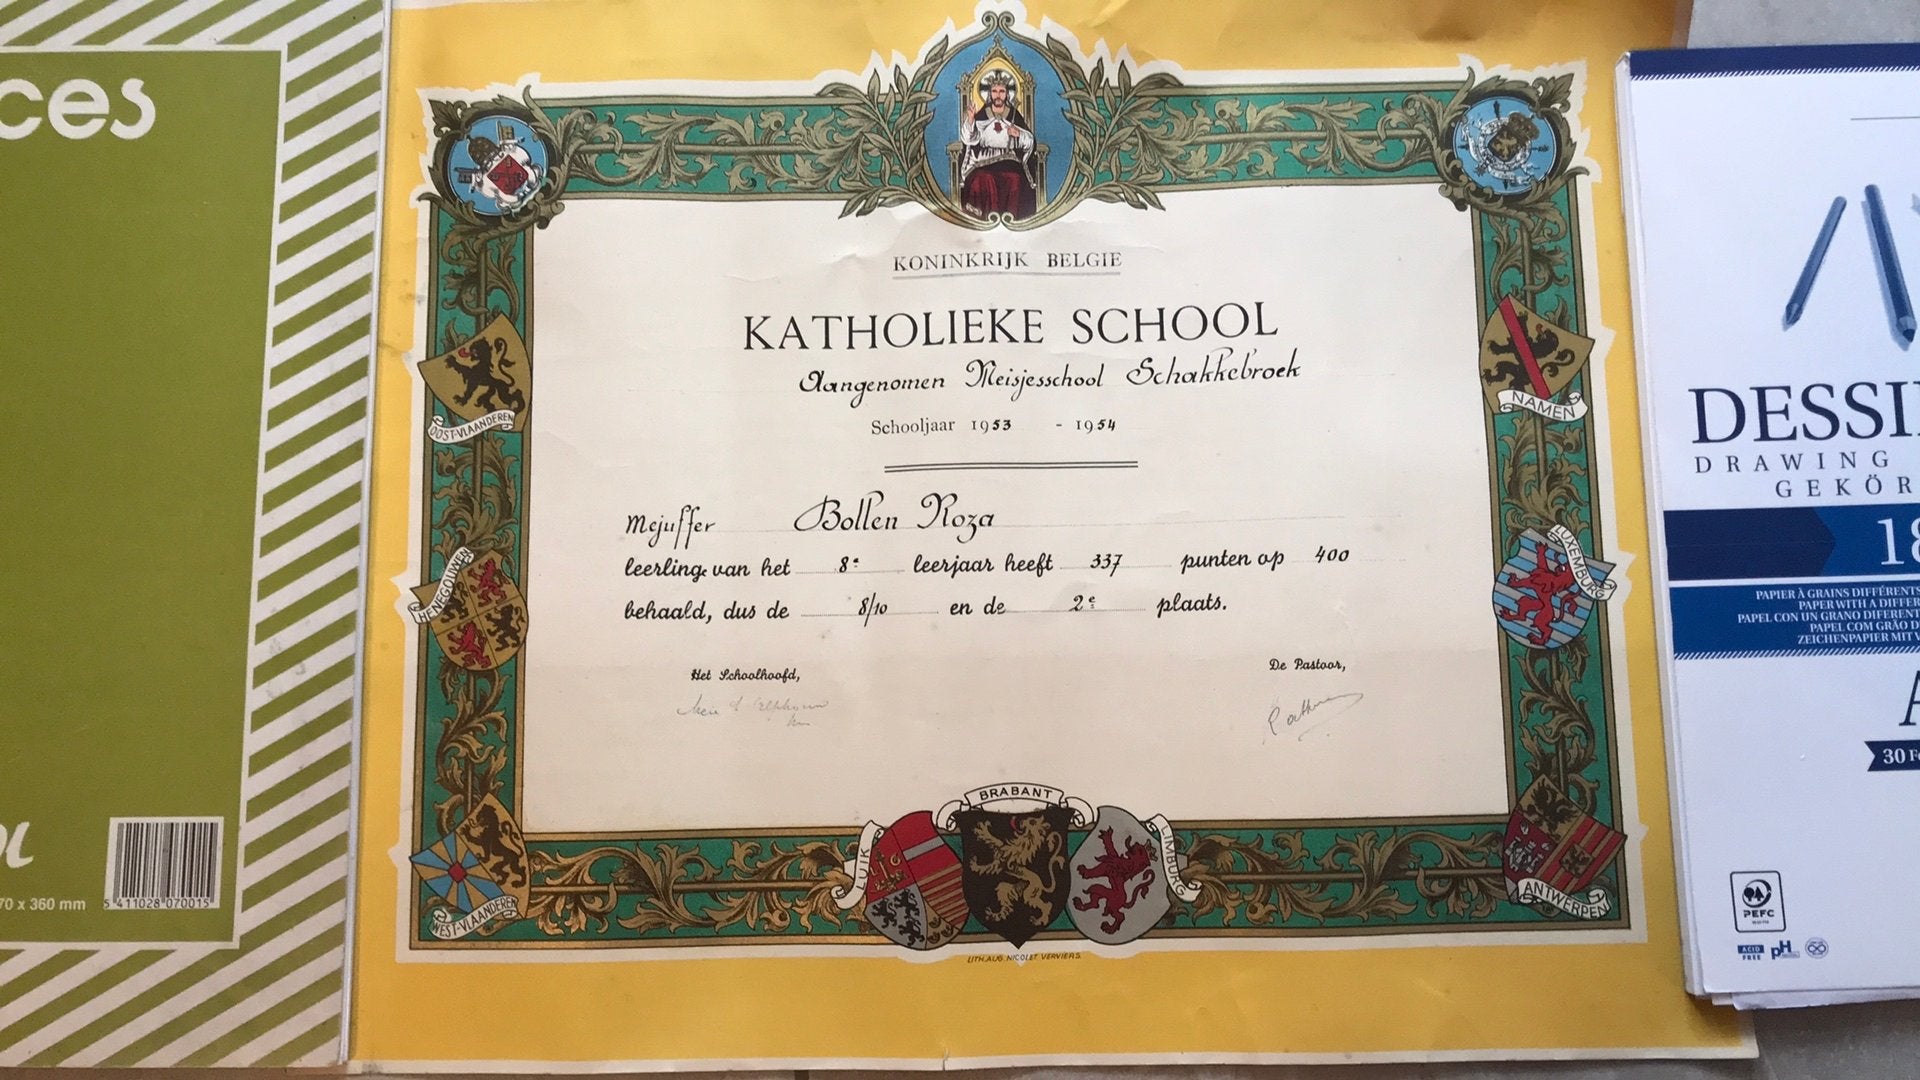 ces
70 x 360 mm
5 411028 070015
KONINKRIJK BELGIE
KATHOLIEKE SCHOOL
Aangenomen Meisjesschool Schakkebroek
Schooljaar 1953 - 1954
Mejuffer Bollen Roza
leerling van het 8e leerjaar heeft 337 punten op 400
behaald, dus de 8/10 en de 2e plaats.
Het Schoolhoofd,
De Pastoor,
OOST-VLAANDEREN
HENEGOUWEN
WEST-VLAANDEREN
LUIK
BRABANT
LIMBURG
NAMEN
LUXEMBURG
ANTWERPEN
LITH. AUG. NICOLET. VERVIERS.
DESSI
DRAWING
GEKÖR
18
PAPIER À GRAINS DIFFÉRENTS
PAPER WITH A DIFFER
PAPEL CON UN GRANO DIFERENT
PAPEL COM GRÃO D
ZEICHENPAPIER MIT V
A
30 F
PEFC
ACID FREE
pH